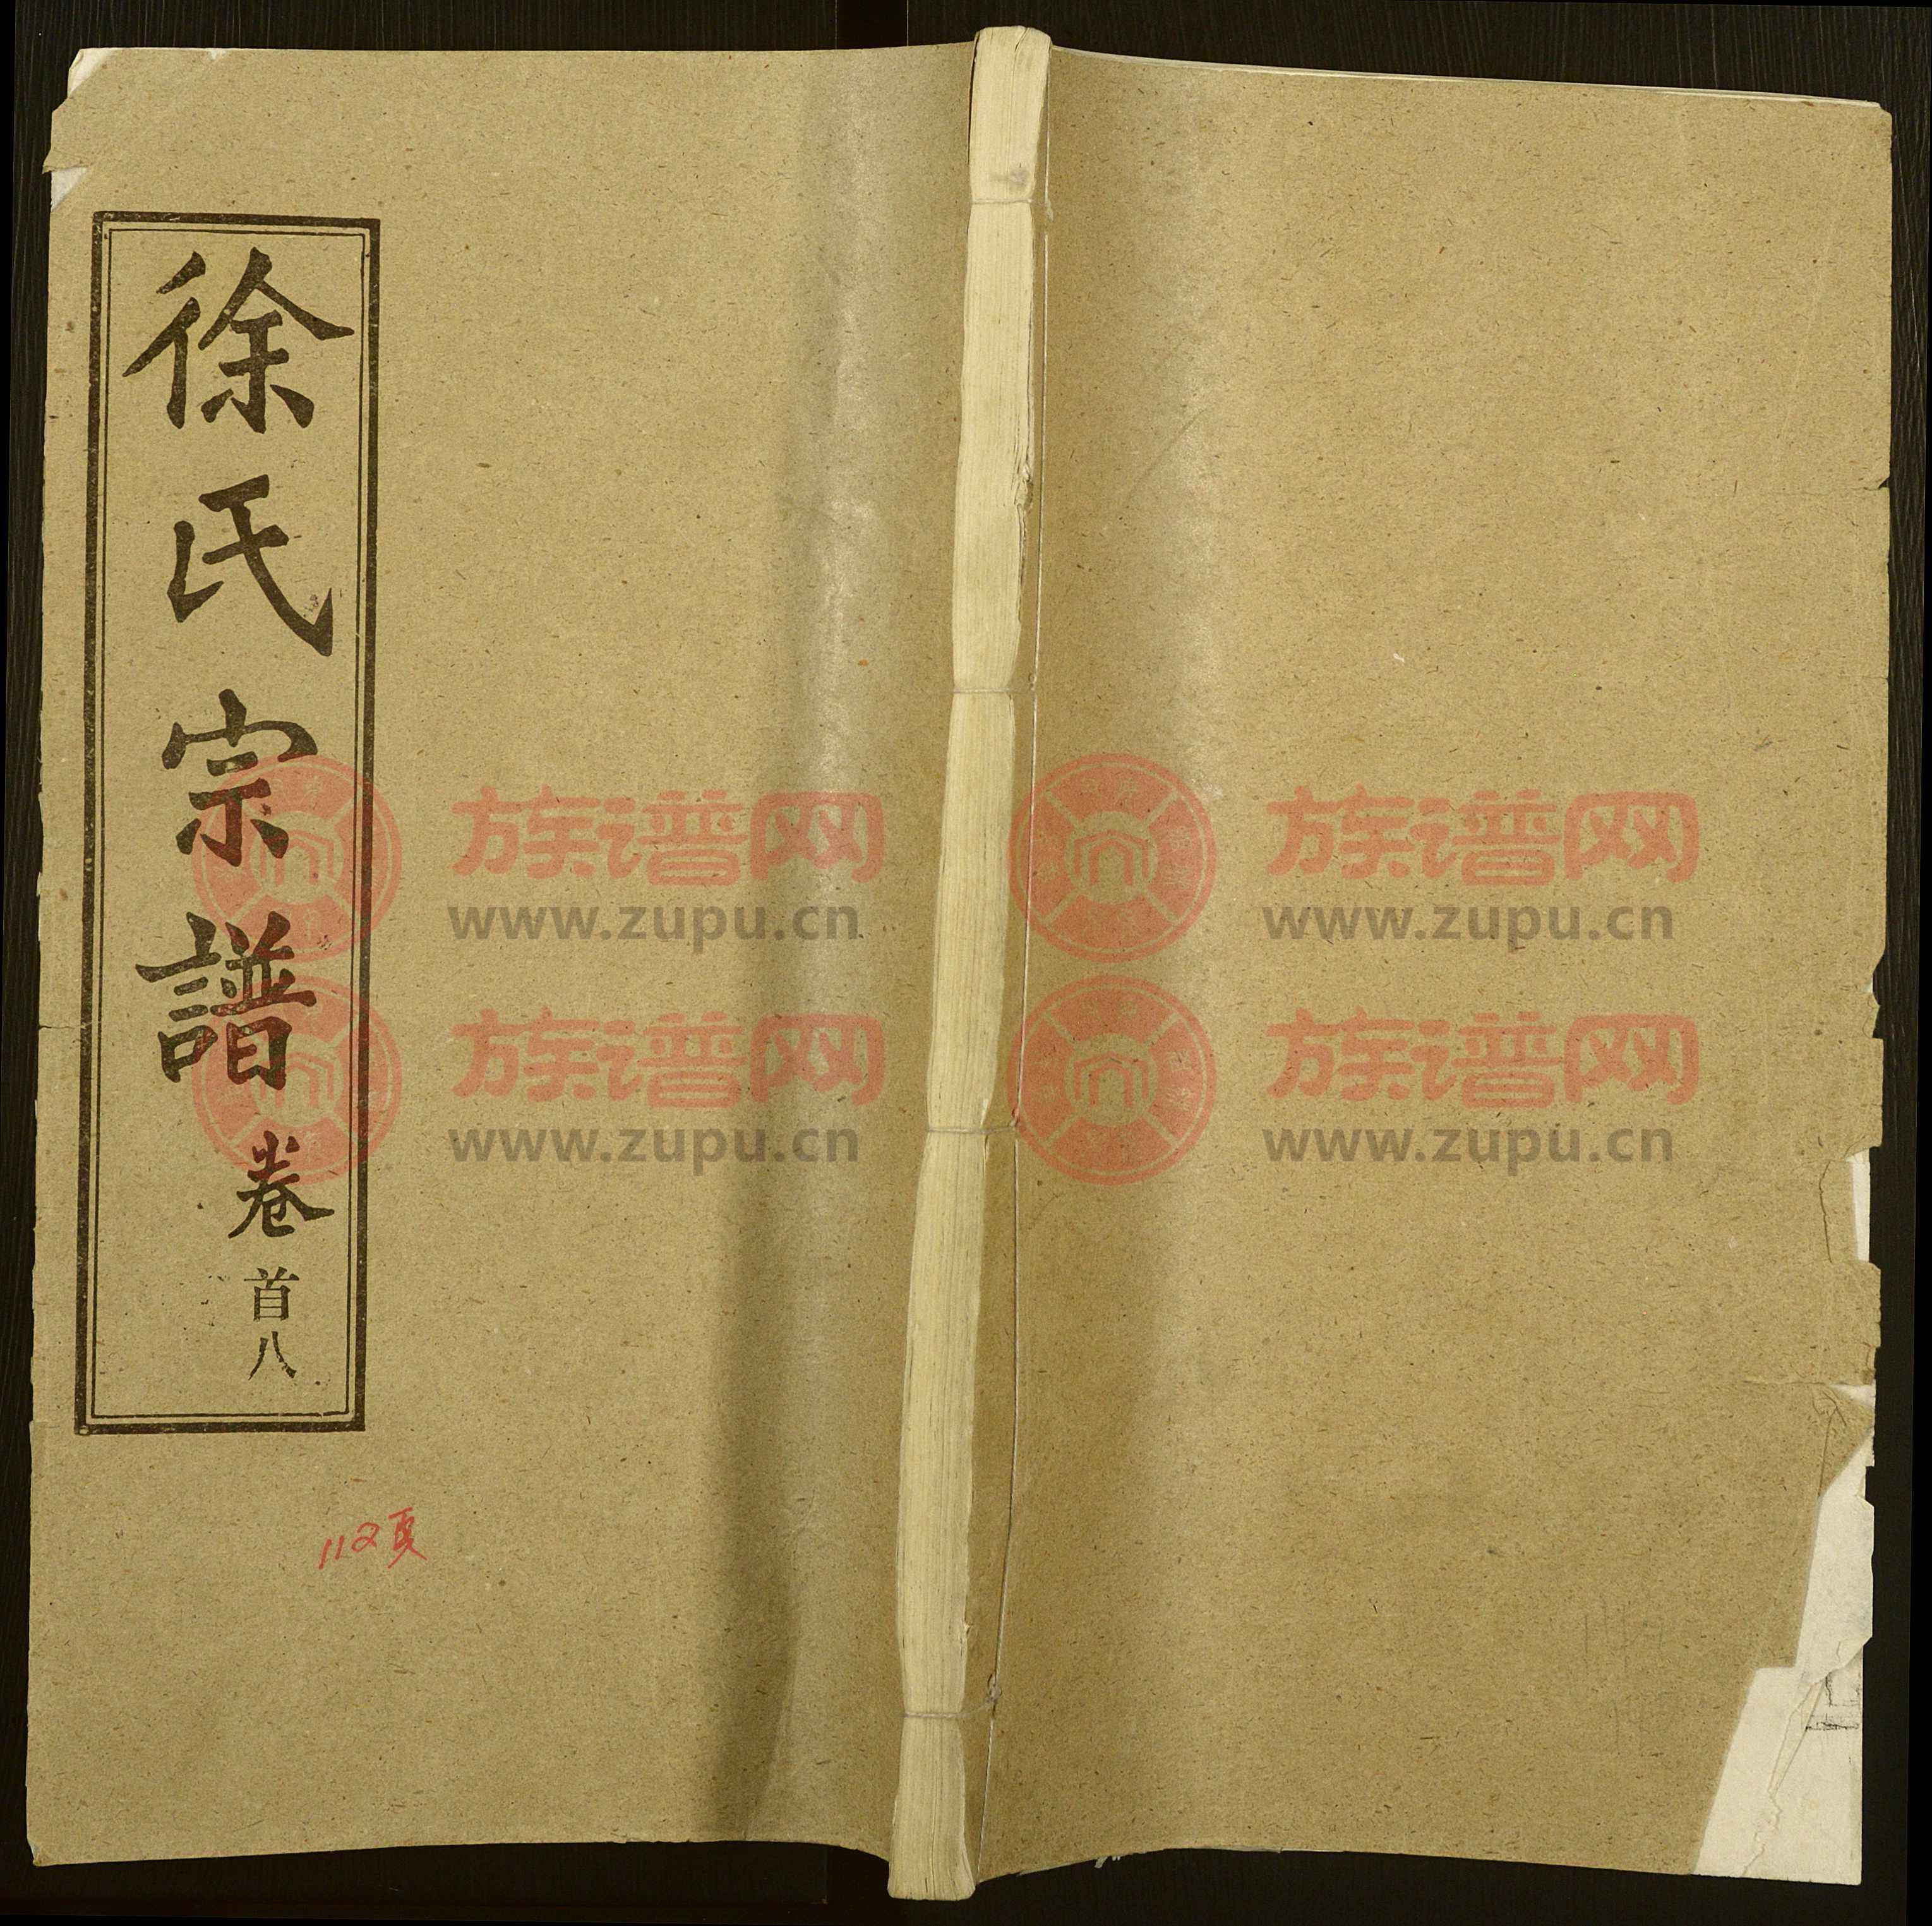 徐氏宗譜 卷首八
112页
族谱网
www.zupu.cn
族谱网
www.zupu.cn
族谱网
www.zupu.cn
族谱网
www.zupu.cn